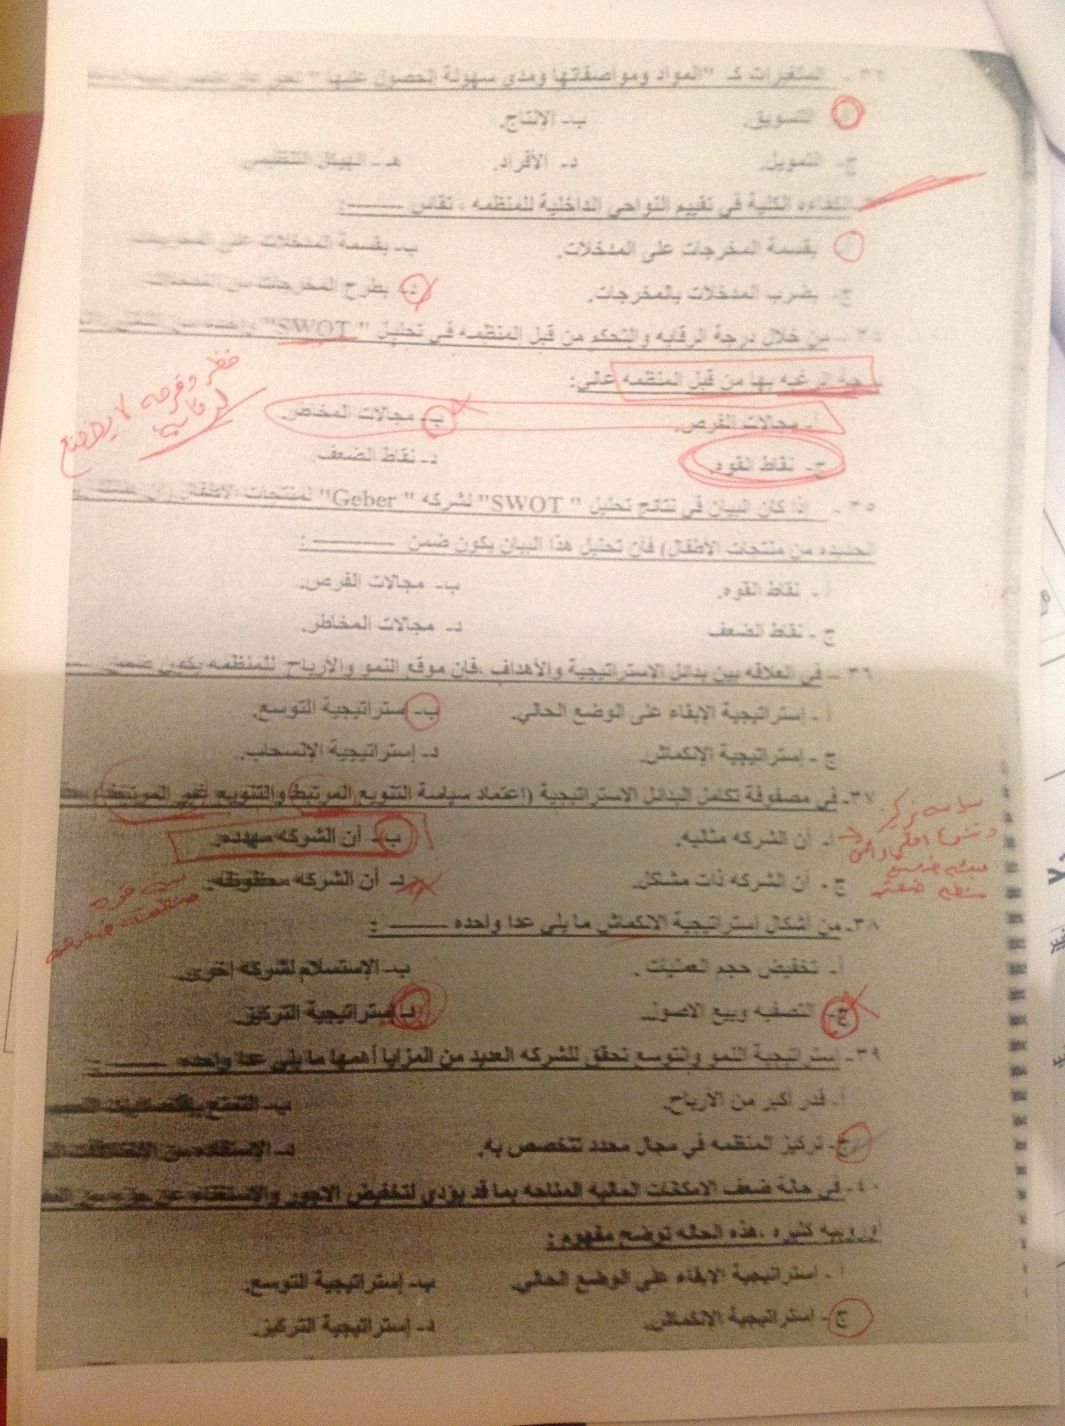 ٣٢ - المتغيرات كـ "المواد ومواصفاتها ومدى سهولة الحصول عليها" تعبر عن
أ- التسويق. ب- الإنتاج.
ج- التمويل. د- الأفراد. هـ - الهيكل التنظيمي
الكفاءه الكلية في تقييم النواحي الداخلية للمنظمه ، تقاس ـــــــ:
بقسمة المخرجات على المدخلات. ب- بقسمة المدخلات على المخرجات.
ج- بضرب المدخلات بالمخرجات. د- بطرح المخرجات من المدخلات.
من خلال درجة الرقابه والتحكم من قبل المنظمه في تحليل " SWOT"
الرغبه بها من قبل المنظمه عالي:
خطر وفرصه لا
أ- مجالات الفرص. ب- مجالات المخاطر.
ج- نقاط القوه. د- نقاط الضعف.
٣٥ - إذا كان البيان في نتائج تحليل " SWOT" لشركه " Geber" لمنتجات الأطفال
الجديده من منتجات الأطفال) فأن تحليل هذا البيان يكون ضمن ـــــــ :
أ - نقاط القوه. ب- مجالات الفرص.
ج - نقاط الضعف د- مجالات المخاطر.
٣٦ - في العلاقه بين بدائل الاستراتيجية والأهداف ،فإن موقع النمو والأرباح للمنظمه يكون ضمن
أ - إستراتيجية الإبقاء على الوضع الحالي. ب- إستراتيجية التوسع.
ج - إستراتيجية الإنكماش. د- إستراتيجية الإنسحاب.
٣٧- في مصفوفة تكامل البدائل الاستراتيجية (اعتماد سياسة التنويع المرتبط والتنويع غير المرتبط
أ- أن الشركه مثاليه. ب- أن الشركه مهدده.
ج - أن الشركه ذات مشاكل. د- أن الشركه محظوظه.
٣٨- من أشكال إستراتيجية الانكماش ما يلي عدا واحده ـــــــ :
أ - تخفيض حجم العمليات . ب- الإستسلام لشركه إخرى.
ج- التصفيه وبيع الاصول. د- إستراتيجية التركيز.
٣٩- إستراتيجية النمو والتوسع تحقق للشركه العديد من المزايا أهمها ما يلي عدا واحده ـــــــ :
أ- قدر أكبر من الأرباح. ب- التمتع
ج- تركيز المنظمه في مجال محدد تتخصص به. د- الإستفاده من
٤٠- في حالة ضعف الامكانات الماليه المتاحه بما قد يؤدي لتخفيض الاجور والاستغناء عن جزء من
أوروبيه كثيره ،هذه الحاله توضح مفهوم :
أ - إستراتيجية الإبقاء على الوضع الحالي. ب- إستراتيجية التوسع.
ج- إستراتيجية الانكماش. د- إستراتيجية التركيز.